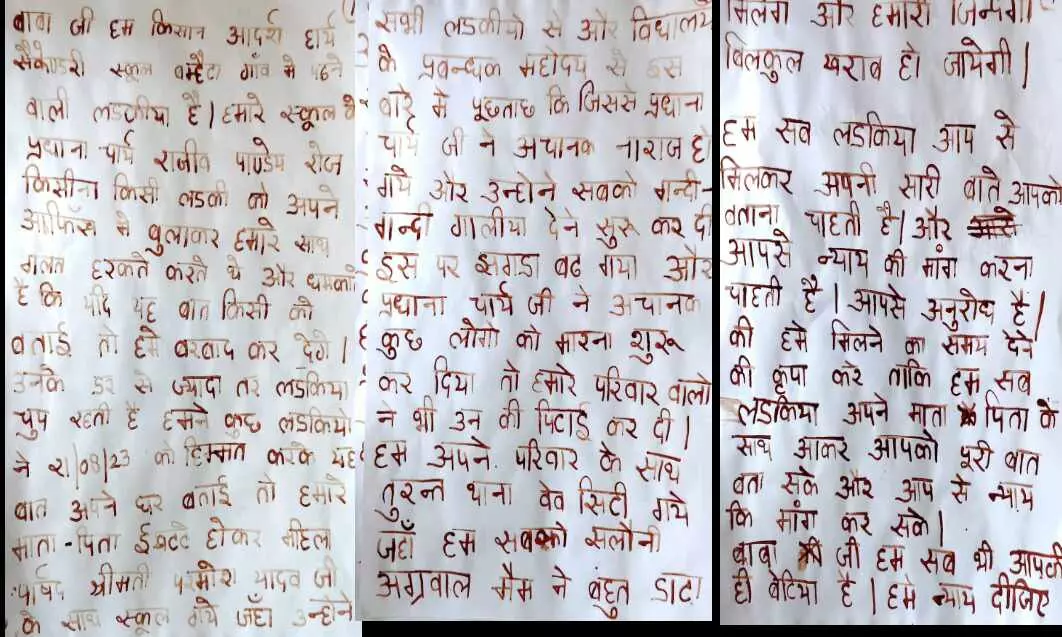 बाबा जी हम किसान आदर्श हार्य
सैकेण्डरी स्कूल बम्हैटा गाँव मे पढने
वाली लडकीया है। हमारे स्कूल के
प्रधाना चार्य राजीव पाण्डेय रोज
किसीना किसी लडकी को अपने
आफिस मे बुलाकर हमारे साथ
गलत हरकते करते थे और धमकाते
है कि यदि यह बात किसी को
बताई तो हमे बरबाद कर देगे।
उनके डर से ज्यादा तर लडकिया
चुप रहती है हमने कुछ लडकियो
ने 21/08/23 को हिम्मत करके यह
बात अपने घर बताई तो हमारे
माता-पिता ईकटटे होकर महिला
पार्षद श्रीमती परमोश यादव जी
के साथ स्कूल गये जहाँ उन्होने
सभी लडकीयो से और विधालय
के प्रबन्धक महोदय से इस
बारे मे पूछताछ कि जिससे प्रधाना
चार्य जी ने अचानक नाराज हो
गये और उन्होने सबको गन्दी-
गन्दी गालीया देने सुरू कर दी
इस पर झगडा बढ गया और
प्रधाना चार्य जी ने अचानक
कुछ लोगो को मारना शुरू
कर दिया तो हमारे परिवार वालो
ने भी उन की पिटाई कर दी।
हम अपने परिवार के साथ
तुरन्त थाना वेव सिटी गये
जहाँ हम सबको सलौनी
अग्रवाल मैम ने बहुत डाटा
मिलेगा और हमारी जिन्दगी
बिलकुल खराब हो जायेगी।
हम सब लडकिया आप से
मिलकर अपनी सारी बाते आपको
बताना चाहती है। और
आपसे न्याय की मांग करना
चाहती है। आपसे अनुरोध है।
की हमे मिलने का समय देने
की कृपा करे ताकि हम सब
लडकिया अपने माता पिता के
साथ आकर आपको पूरी बात
बता सके और आप से न्याय
कि मांग कर सके।
बाबा जी हम सब भी आपकी
ही बेटिया है। हमे न्याय दीजिए